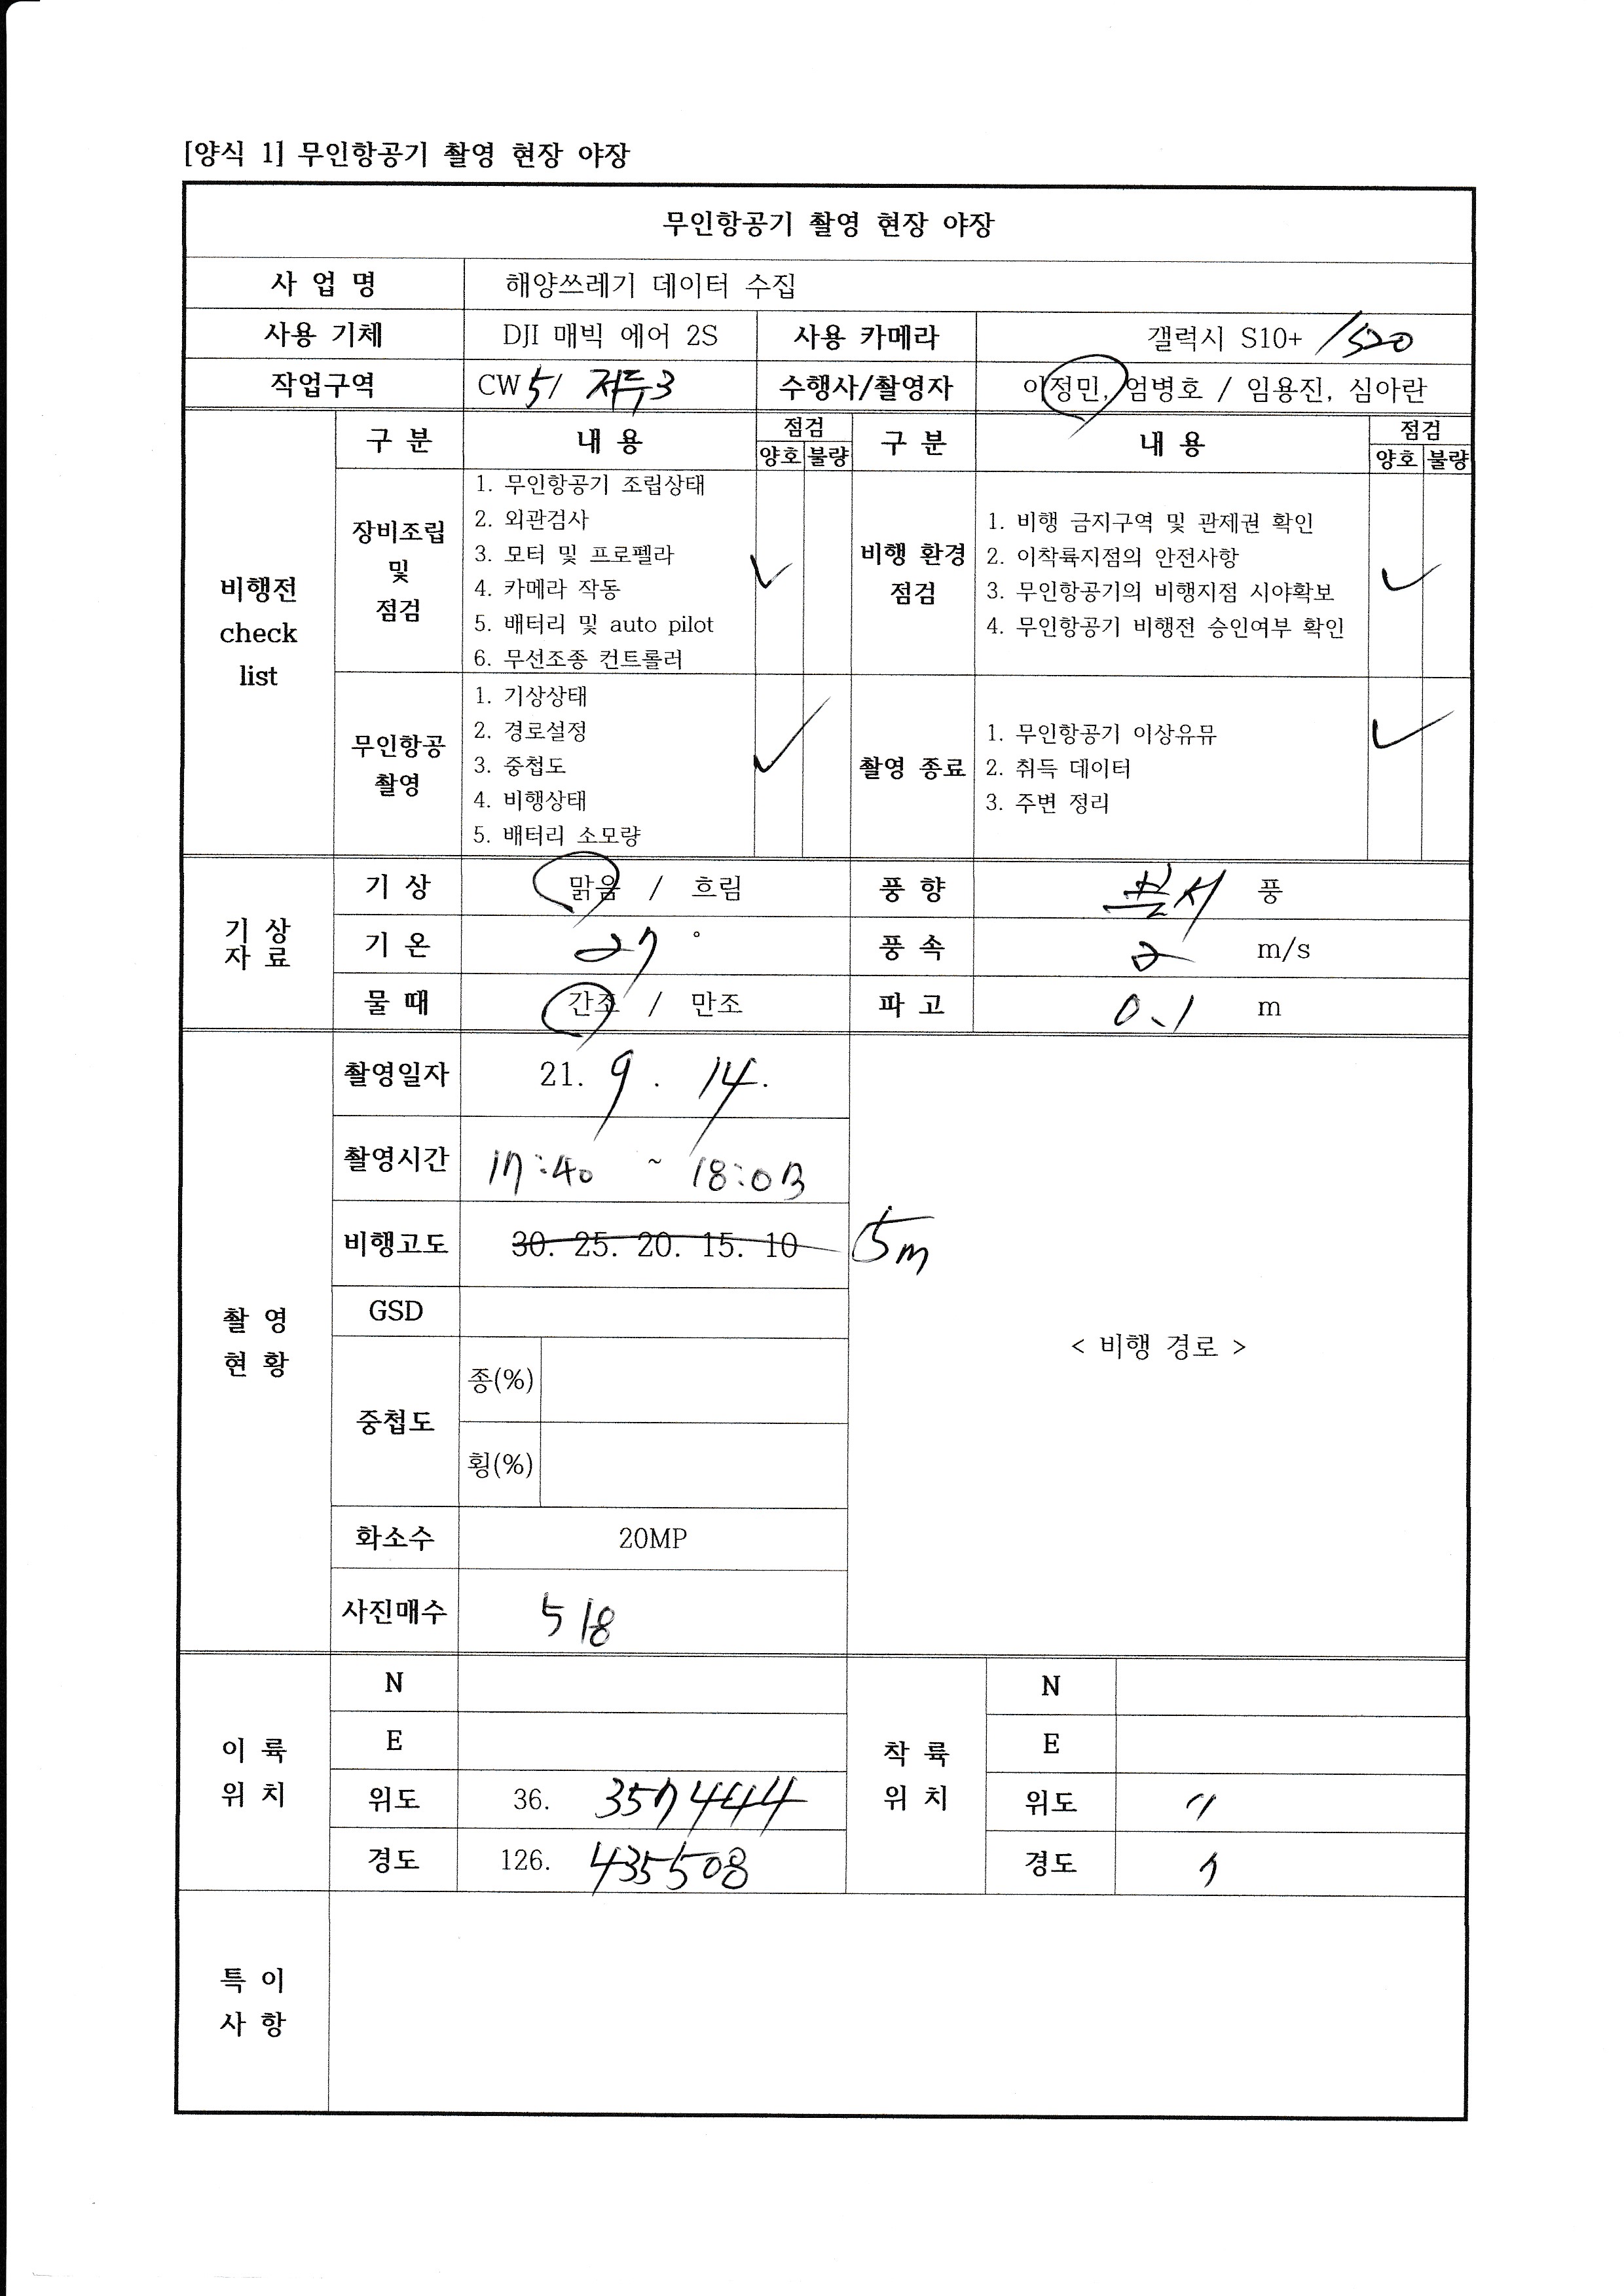 [양식 1] 무인항공기 촬영 현장 야장
무인항공기 촬영 현장 야장
사 업 명 해양쓰레기 데이터 수집
사용 기체 DJI 매빅 에어 2S 사용 카메라 갤럭시 S10+ /S20
작업구역 CW 5/ 저두3 수행사/촬영자 이정민, 엄병호 / 임용진, 심아란
비행전
check
list
구 분 내 용 점검 구 분 내 용 점검
양호 불량 양호 불량
장비조립
및
점검
1. 무인항공기 조립상태
2. 외관검사
3. 모터 및 프로펠라
4. 카메라 작동
5. 배터리 및 auto pilot
6. 무선조종 컨트롤러
비행 환경
점검
1. 비행 금지구역 및 관제권 확인
2. 이착륙지점의 안전사항
3. 무인항공기의 비행지점 시야확보
4. 무인항공기 비행전 승인여부 확인
무인항공
촬영
1. 기상상태
2. 경로설정
3. 중첩도
4. 비행상태
5. 배터리 소모량
촬영 종료
1. 무인항공기 이상유뮤
2. 취득 데이터
3. 주변 정리
기 상
자 료
기 상 맑음 / 흐림 풍 향 북서 풍
기 온 27 ° 풍 속 2 m/s
물 때 간조 / 만조 파 고 0.1 m
촬 영
현 황
촬영일자 21. 9. 14.
촬영시간 17:40 ~ 18:03
비행고도 30. 25. 20. 15. 10 5m
GSD
중첩도
종(%)
횡(%)
< 비행 경로 >
화소수 20MP
사진매수 518
이 륙
위 치
N
E
위도 36. 357444
경도 126. 435508
착 륙
위 치
N
E
위도 〃
경도 〃
특 이
사 항